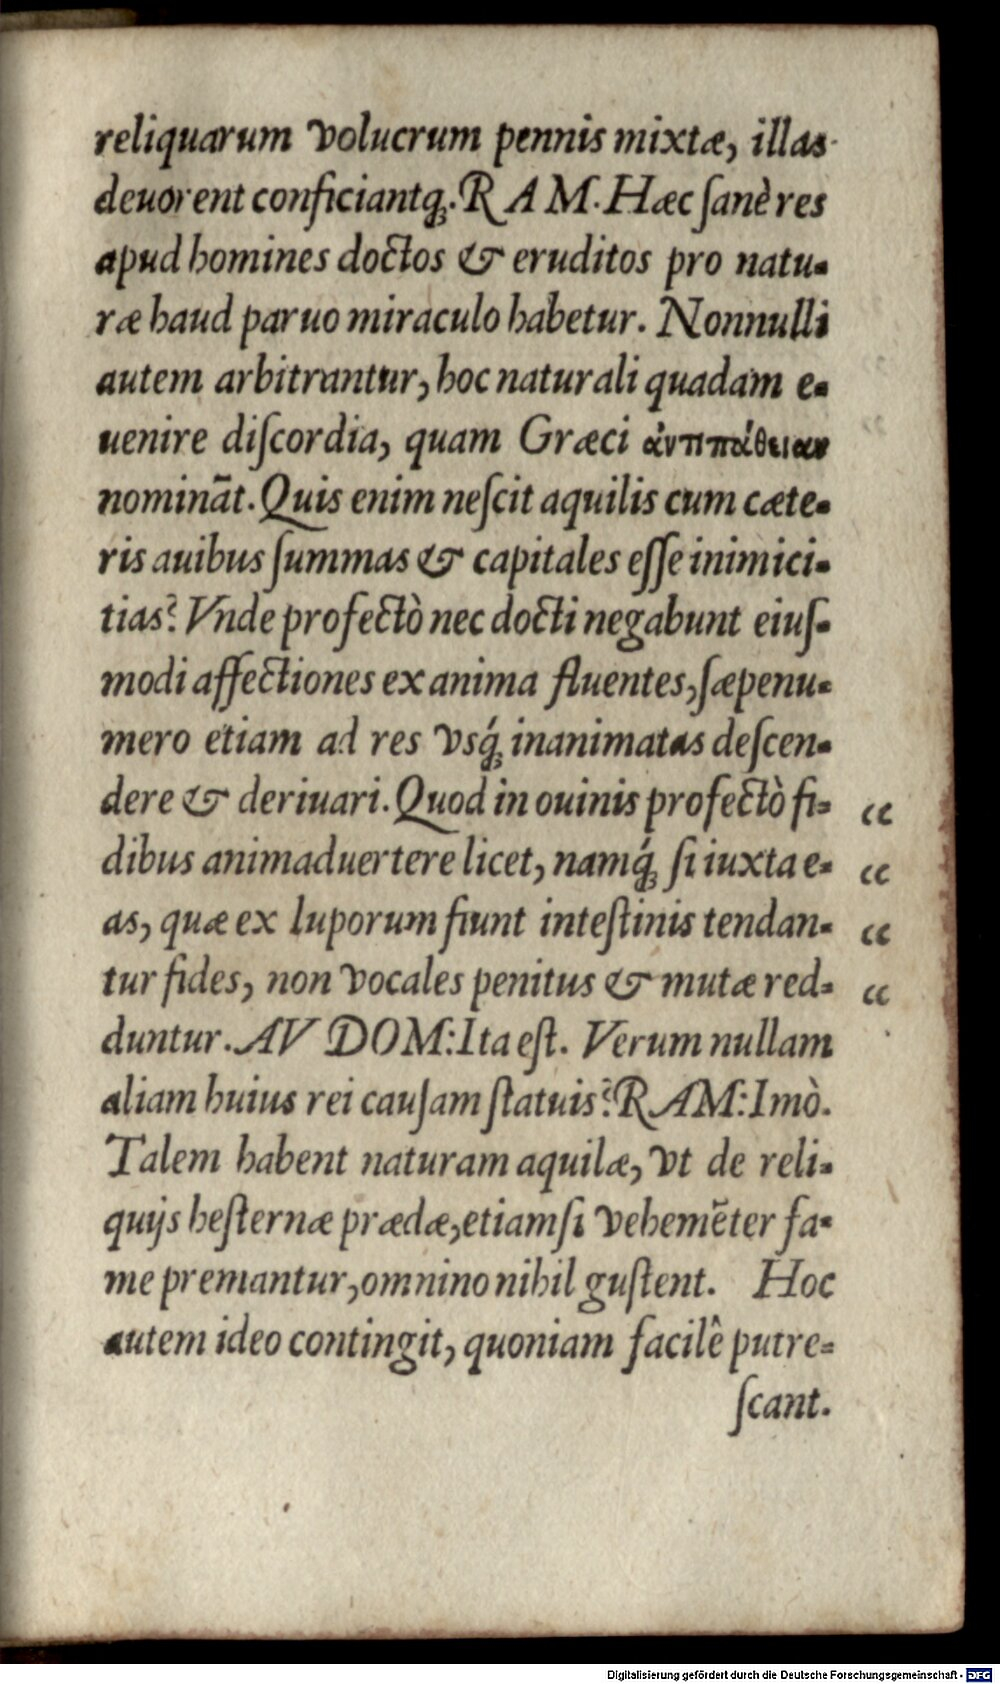 reliquarum volucrum pennis mixtæ, illas
deuorent conficiantq́;. RAM. Hæc ſanè res
apud homines doctos & eruditos pro natu-
ræ haud paruo miraculo habetur. Nonnulli
autem arbitrantur, hoc naturali quadam e-
uenire diſcordia, quam Græci ἀντιπάθειαν
nominãt. Quis enim neſcit aquilis cum cæte-
ris auibus ſummas & capitales eſſe inimici-
tias? Vnde profectò nec docti negabunt eiuſ-
modi affectiones ex anima fluentes, ſæpenu-
mero etiam ad res vsq́; inanimatas deſcen-
dere & deriuari. Quod in ouinis profectò fi- “
dibus animaduertere licet, namq́; ſi iuxta e- “
as, quæ ex luporum fiunt inteſtinis tendan- “
tur fides, non vocales penitus & mutæ red- “
duntur. AV DOM: Ita eſt. Verum nullam
aliam huius rei cauſam ſtatuis? RAM: Imò.
Talem habent naturam aquilæ, vt de reli-
quijs heſternæ prædæ, etiamſi vehemẽter fa-
me premantur, omnino nihil guſtent. Hoc
autem ideo contingit, quoniam facilê putre-
ſcant.
Digitalisierung gefördert durch die Deutsche Forschungsgemeinschaft - DFG